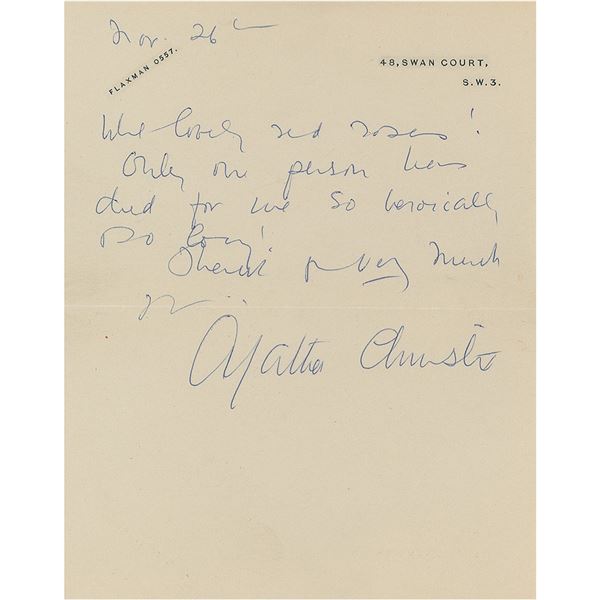 Nov. 26th
FLAXMAN 0557.
48, SWAN COURT,
S.W.3.
lovely red roses!
Only one person has
died for me so heroically
so long!
Thank you very much
Agatha Christie